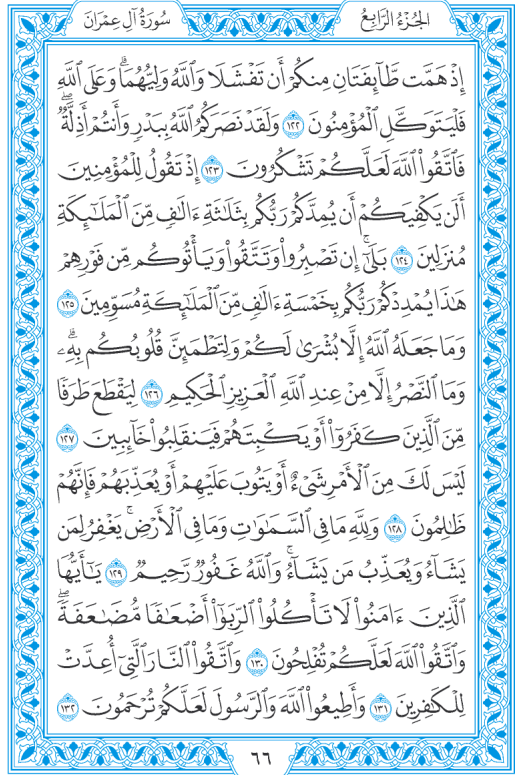 الجُزْءُ الرَّابِعُ
سُورَةُ آلِ عِمْرَانَ
إِذْ هَمَّت طَّآئِفَتَانِ مِنكُمْ أَن تَفْشَلَا وَٱللَّهُ وَلِيُّهُمَاۗ وَعَلَى ٱللَّهِ
فَلْيَتَوَكَّلِ ٱلْمُؤْمِنُونَ ١٢٢ وَلَقَدْ نَصَرَكُمُ ٱللَّهُ بِبَدْرٍ وَأَنتُمْ أَذِلَّةٌۖ
فَٱتَّقُوا۟ ٱللَّهَ لَعَلَّكُمْ تَشْكُرُونَ ١٢٣ إِذْ تَقُولُ لِلْمُؤْمِنِينَ
أَلَن يَكْفِيَكُمْ أَن يُمِدَّكُمْ رَبُّكُم بِثَلَٰثَةِ ءَالَٰفٍ مِّنَ ٱلْمَلَٰٓئِكَةِ
مُنزَلِينَ ١٢٤ بَلَىٰٓۚ إِن تَصْبِرُوا۟ وَتَتَّقُوا۟ وَيَأْتُوكُم مِّن فَوْرِهِمْ
هَٰذَا يُمْدِدْكُمْ رَبُّكُم بِخَمْسَةِ ءَالَٰفٍ مِّنَ ٱلْمَلَٰٓئِكَةِ مُسَوِّمِينَ ١٢٥
وَمَا جَعَلَهُ ٱللَّهُ إِلَّا بُشْرَىٰ لَكُمْ وَلِتَطْمَئِنَّ قُلُوبُكُم بِهِۦۗ
وَمَا ٱلنَّصْرُ إِلَّا مِنْ عِندِ ٱللَّهِ ٱلْعَزِيزِ ٱلْحَكِيمِ ١٢٦ لِيَقْطَعَ طَرَفًا
مِّنَ ٱلَّذِينَ كَفَرُوٓا۟ أَوْ يَكْبِتَهُمْ فَيَنقَلِبُوا۟ خَآئِبِينَ ١٢٧
لَيْسَ لَكَ مِنَ ٱلْأَمْرِ شَىْءٌ أَوْ يَتُوبَ عَلَيْهِمْ أَوْ يُعَذِّبَهُمْ فَإِنَّهُمْ
ظَٰلِمُونَ ١٢٨ وَلِلَّهِ مَا فِى ٱلسَّمَٰوَٰتِ وَمَا فِى ٱلْأَرْضِۚ يَغْفِرُ لِمَن
يَشَآءُ وَيُعَذِّبُ مَن يَشَآءُۚ وَٱللَّهُ غَفُورٌ رَّحِيمٌ ١٢٩ يَٰٓأَيُّهَا
ٱلَّذِينَ ءَامَنُوا۟ لَا تَأْكُلُوا۟ ٱلرِّبَوٰٓا۟ أَضْعَٰفًا مُّضَٰعَفَةًۖ
وَٱتَّقُوا۟ ٱللَّهَ لَعَلَّكُمْ تُفْلِحُونَ ١٣٠ وَٱتَّقُوا۟ ٱلنَّارَ ٱلَّتِىٓ أُعِدَّتْ
لِلْكَٰفِرِينَ ١٣١ وَأَطِيعُوا۟ ٱللَّهَ وَٱلرَّسُولَ لَعَلَّكُمْ تُرْحَمُونَ ١٣٢
٦٦